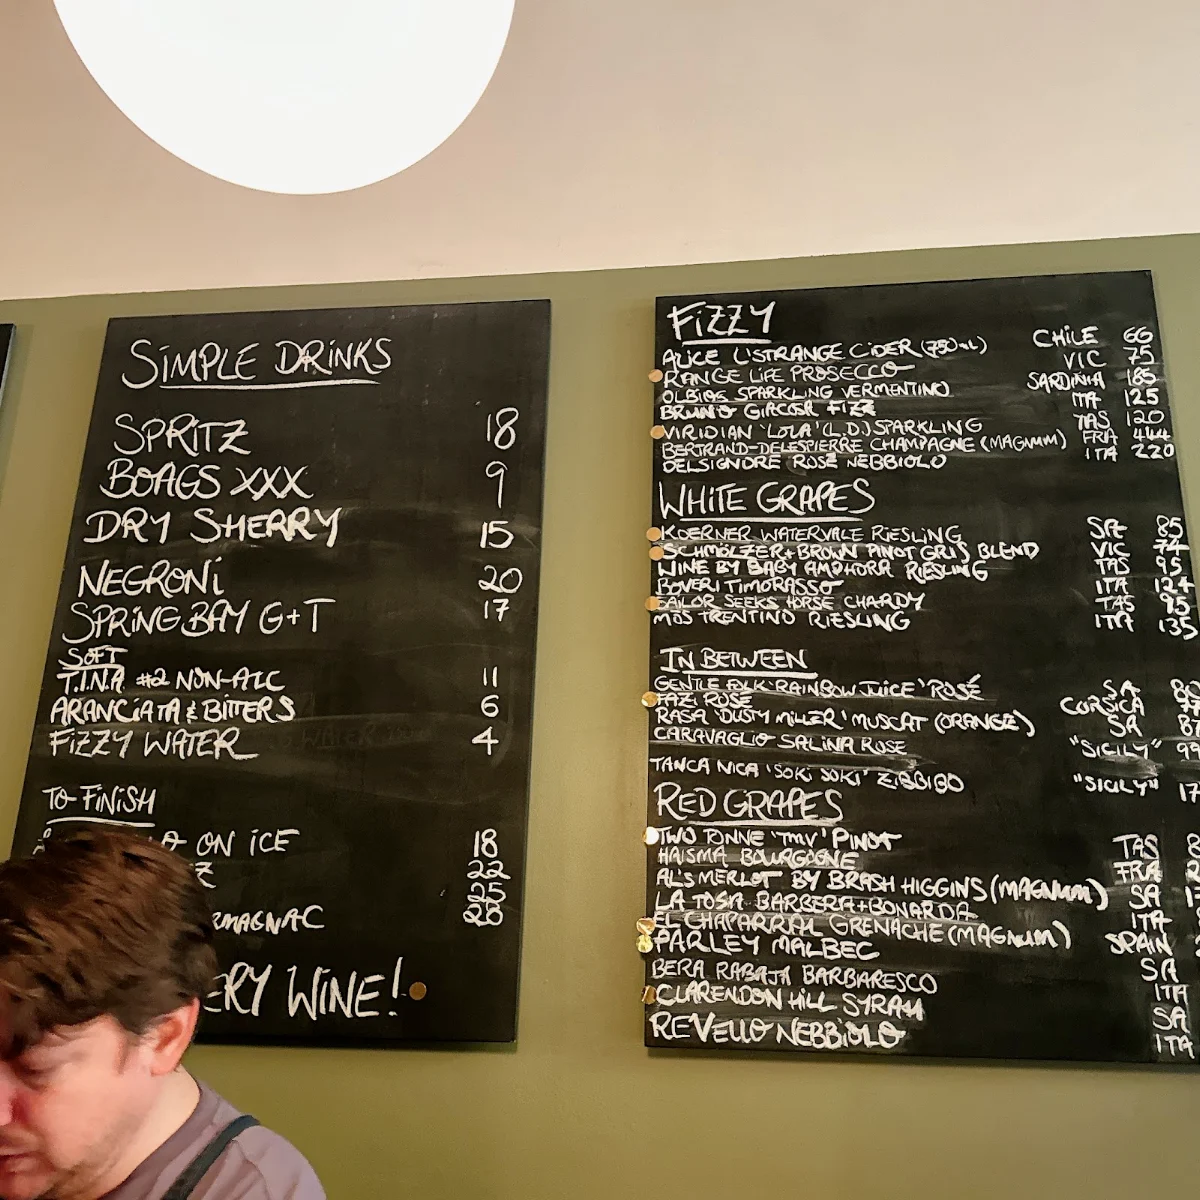 SIMPLE DRINKS
SPRITZ 18
BOAGS XXX 9
DRY SHERRY 15
NEGRONI 20
SPRING BAY G+T 17
SOFT
T.I.N.A #2 NON-ALC 11
ARANCIATA & BITTERS 6
FIZZY WATER 4
TO FINISH
ON ICE 18
22
25
28
WINE!
FIZZY
ALICE L'STRANGE CIDER (750mL) CHILE 66
RANGE LIFE PROSECCO VIC 75
OLBIOS SPARKLING VERMENTINO SARDINIA 185
BRUNO GIACOSA FIZZ ITA 125
VIRIDIAN 'LOLA' (L.D.) SPARKLING TAS 120
BERTRAND-DELESPIERRE CHAMPAGNE (MAGNUM) FRA 444
DELSIGNORE ROSE NEBBIOLO ITA 220
WHITE GRAPES
KOERNER WATERVALE RIESLING SA 85
SCHMÖLZER + BROWN PINOT GRIS BLEND VIC 74
WINE BY BABY AMPHORA RIESLING TAS 95
BOVERI TIMORASSO ITA 124
SAILOR SEEKS HORSE CHARDY TAS 95
MOS TRENTINO RIESLING ITA 135
IN BETWEEN
GENTLE FOLK 'RAINBOW JUICE' ROSÉ SA
FAZI ROSÉ CORSICA
RASA 'DUSTY MILLER' MUSCAT (ORANGE) SA
CARAVAGLIO SALINA ROSE "SICILY"
TANCA NICA 'SOKI SOKI' ZIBBIBO "SICILY"
RED GRAPES
TWO TONNE 'TMV' PINOT TAS
HAISMA BOURGOGNE FRA
AL'S MERLOT BY BRASH HIGGINS (MAGNUM) SA
LA TOSA BARBERA+BONARDA ITA
EL CHAPARRAL GRENACHE (MAGNUM) SPAIN
PARLEY MALBEC SA
BERA RABAJA BARBARESCO ITA
CLARENDON HILL SYRAH SA
REVELLO NEBBIOLO ITA